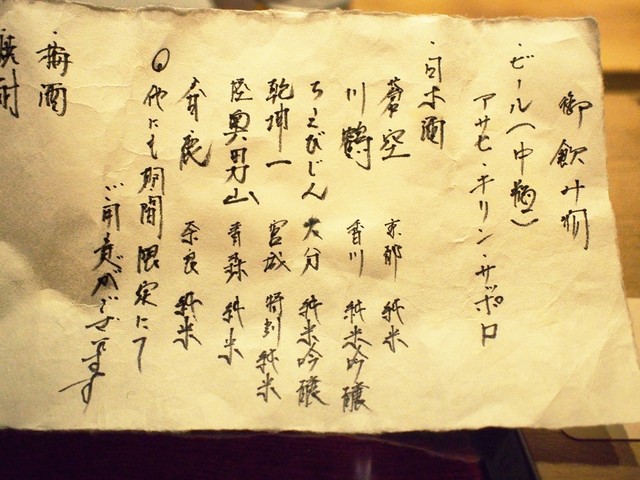 御飲み物
・ビール(中瓶)
アサヒ・キリン・サッポロ
・日本酒
蒼空 京都 純米
川鶴 香川 純米吟醸
ちえびじん 大分 純米吟醸
乾坤一 宮城 特別純米
陸奥男山 青森 純米
春鹿 奈良 純米
◎他にも期間限定にて
ご用意がございます
・梅酒
・焼酎